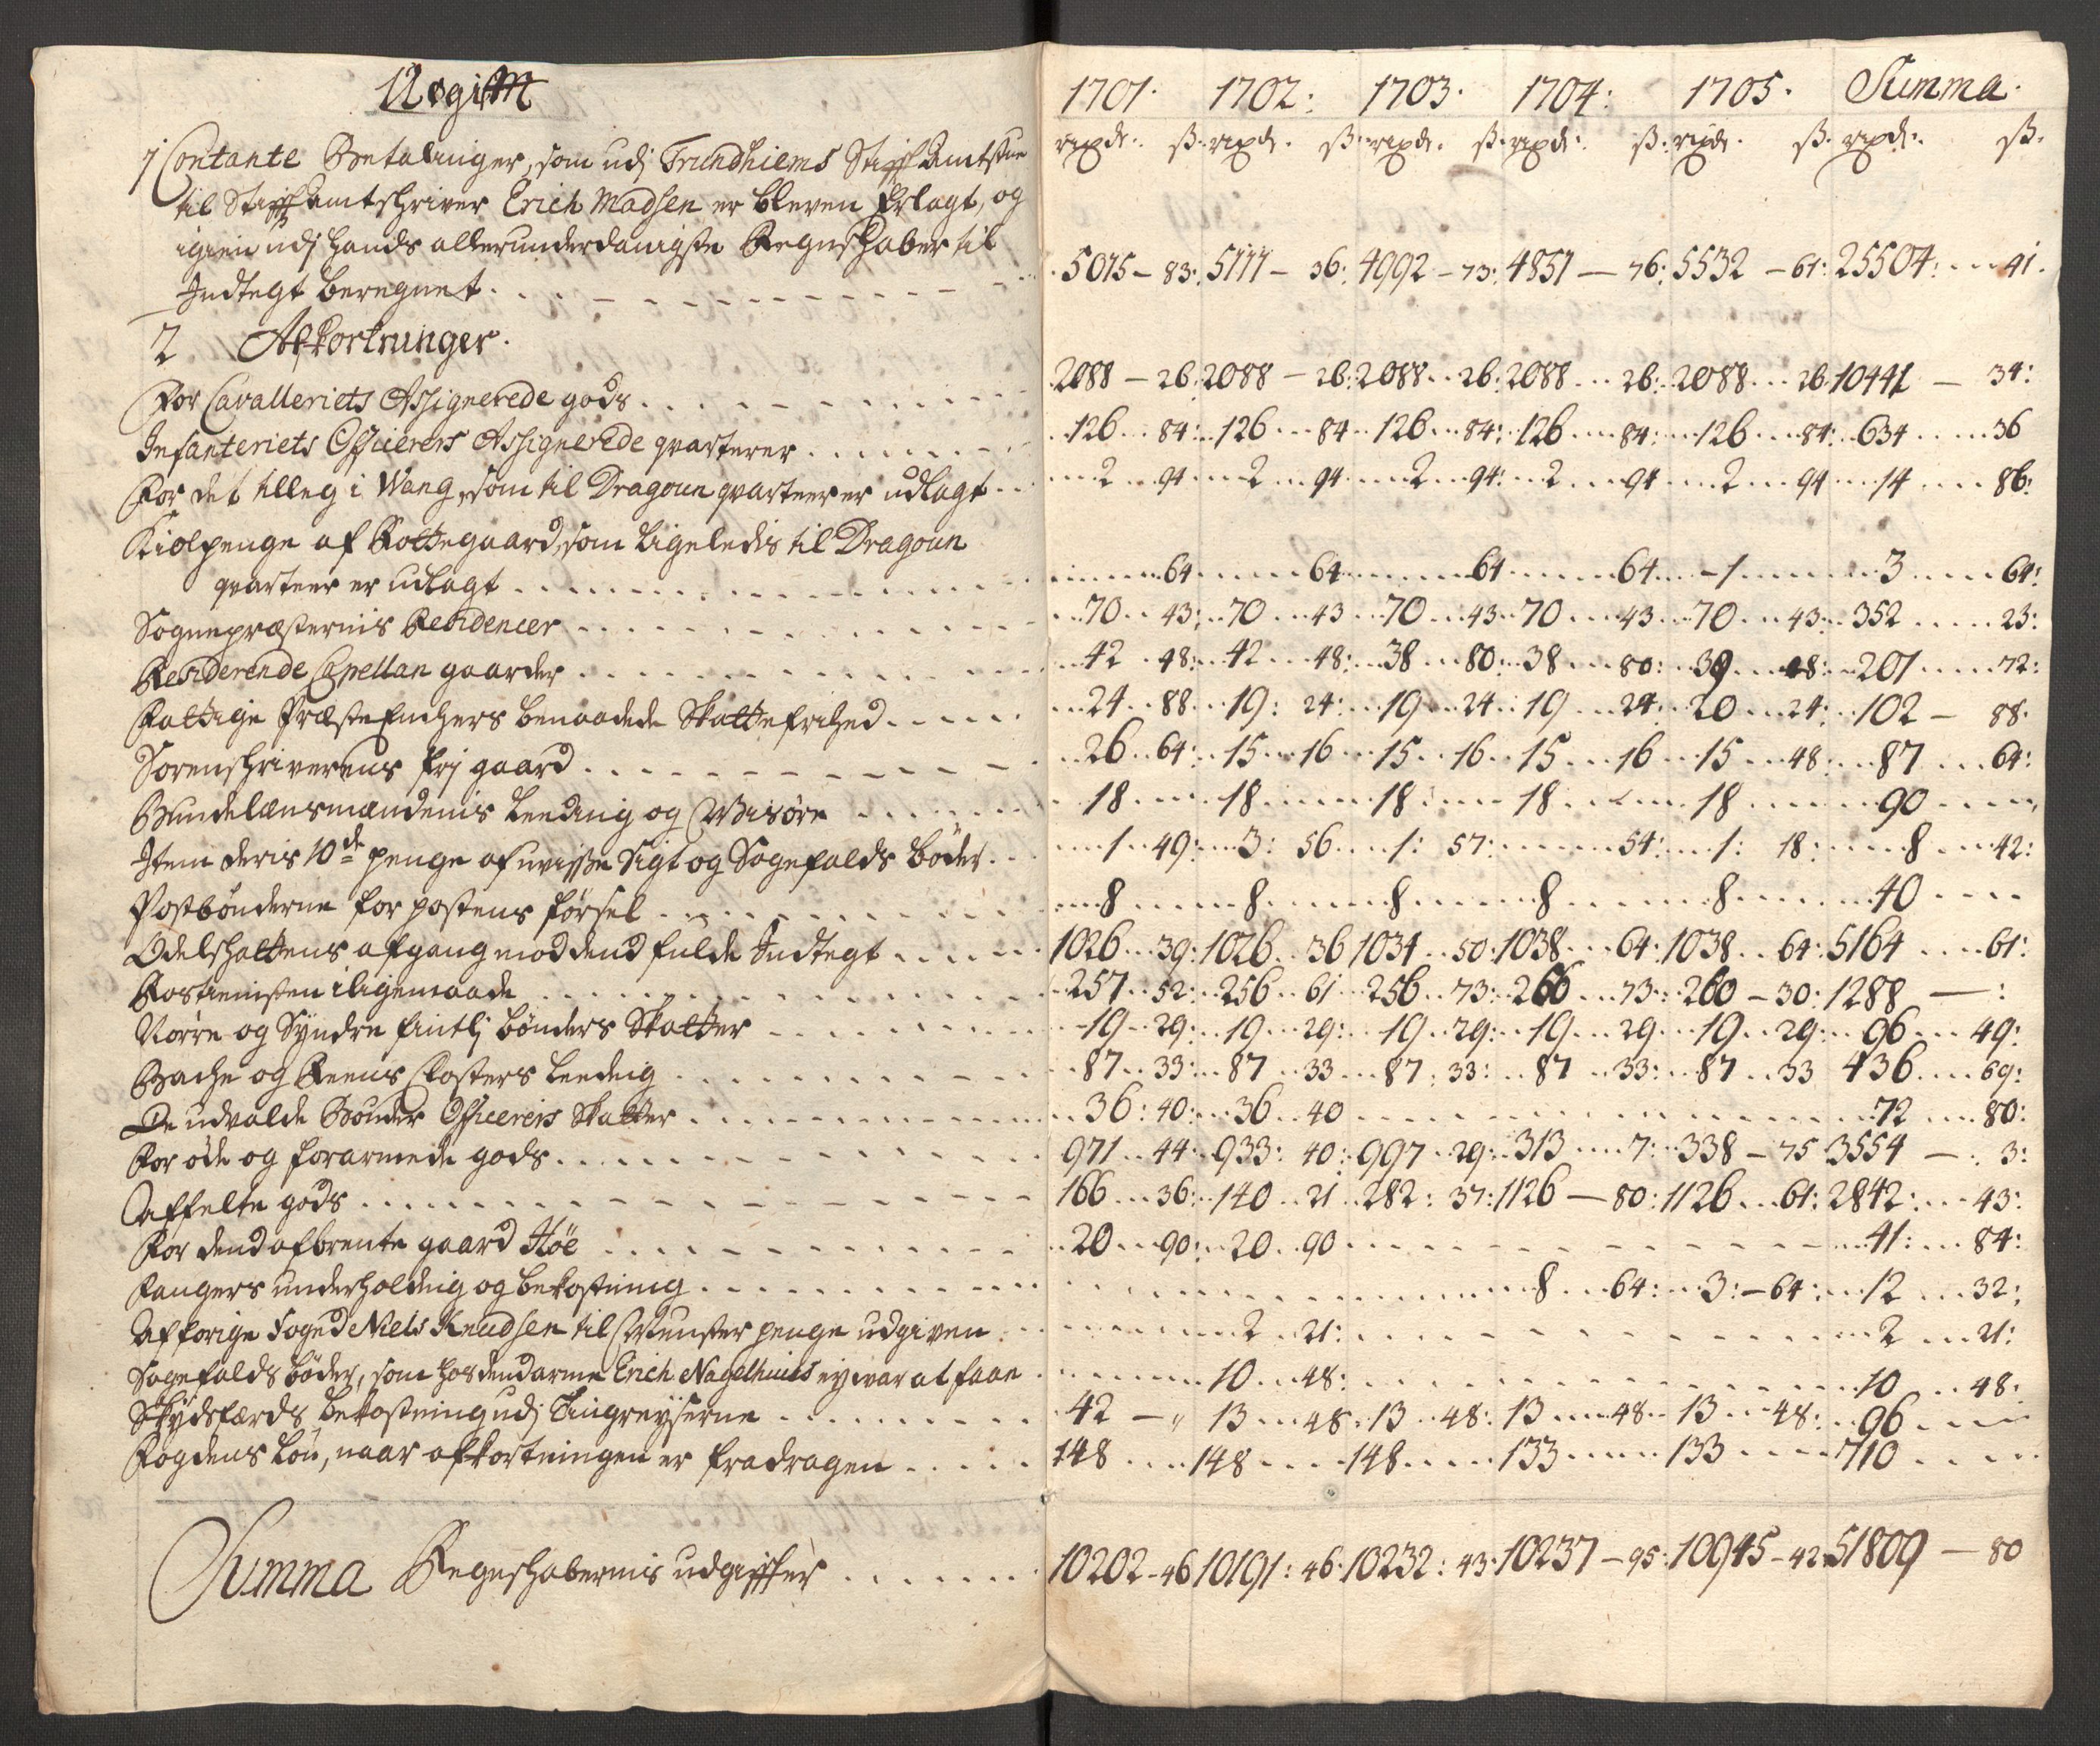 Udgift
1701. 1702: 1703. 1704: 1705. Summa.
rixdr: ß. rixdr. ß. rixdr. ß. rixdr: ß. rixdr. ß. rixdr: ß.
1 Contante Betalinger, som udj Trundhiems Stifft Amtstue
til Stifftamtschriver Erich Madsen er bleven Erlagt, og
igien udj hands allerunderdanigste Regnschaber til
Indtegt beregnet 5015 - 83: 5111 - 36: 4992 - 73: 4851 - 76: 5532 - 61: 25504: 41.
2 Afkortninger.
For Cavalleriets Assignerede gods 2088 - 26: 2088 - 26: 2088 26: 2088 26: 2088 26 10441 - 34:
Infanteriets Officierers Assignerede qvarterer 126 84: 126 84 126 84: 126 84: 126 84: 634 36
For det tilleg i Wang, som til Dragoun qvarteer er udlagt 2 94 2 94 2 94: 2 94 2 94 14 86:
Kiolpenge af Rottegaard, som ligeledis til Dragoun
qvarteer er udlagt 64 64 64 64 1 3 64:
Sognepræsternis Residencer 70 43: 70 43 70 43 70 43 70 43 352 23:
Residerende Capellan gaarder 42 48: 42 48: 38 80: 38 80: 39 48: 201 72:
Fattige Præste Enchers benaadede Skattefrihed 24 88 19: 24: 19 24 19 24: 20 24: 102 - 88.
Sorenschriverens frj gaard 26 64: 15 16 15 16 15 16 15 48: 87 64:
Bundelænsmændenis Leeding og Wisøre 18 18 18 18 18 90
Item deris 10de penge af uvisse Sigt og Sagefalds bøder 1 49: 3: 56 1: 57: 54: 1: 18: 8 42:
Postbønderne for postens førsel 8 8 8 8 8 40
Odelschattens afgang mod dend fulde Indtegt 1026 39: 1026 36 1034 50: 1038 64: 1038 64: 5164 61:
Rostienisten iligemaade 257 52: 256 61 256 73: 266 73: 260 - 30: 1288 - :
Norre og Syndre Lintlj bønders Skatter 19 29: 19 29: 19 29: 19 29 19 29: 96 49:
Bache og Reens Closters Leeding 87 33: 87 33 87: 33: 87 33: 87 33 436 69:
De udvalde Bønder Officerers Skatter 36: 40: 36 40 72 80:
For øde og forarmede gods 971 44: 933: 40: 997 29: 313 7: 338 - 75 3554 - 3:
Affelte gods 166 36: 140 21 282: 37: 1126 - 80: 1126 61: 2842: 43:
For dend afbrente gaard Høe 20 90: 20 90 41: 84:
Fangers underholding og bekostning 8 64: 3: - 64: 12 32:
Afforige Foged Niels Knudsen til Munster penge udgiven 2 21: 2 21:
Sagefalds bøder, som hos dend arme Erich Nagelhuus ey war at faae 10 48: 10 48:
Skydsfærds bekostning udj Tingreyserne 42 - " 13 48: 13 48: 13 48 13 48: 96
Fogdens Løn, naar afkortningen er fradragen 148 148 148 133 133 710
Summa Regnschabernis udgiffter 10202 - 46 10191: 46 10232: 43: 10237 - 95: 10945 - 42: 51809 - 80